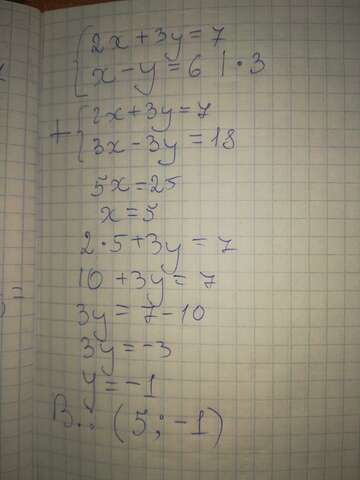 2x+3y=7
x-y=6 |·3
+ 2x+3y=7
3x-3y=18
5x=25
x=5
2·5+3y=7
10+3y=7
3y=7-10
3y=-3
y=-1
В.: (5;-1)